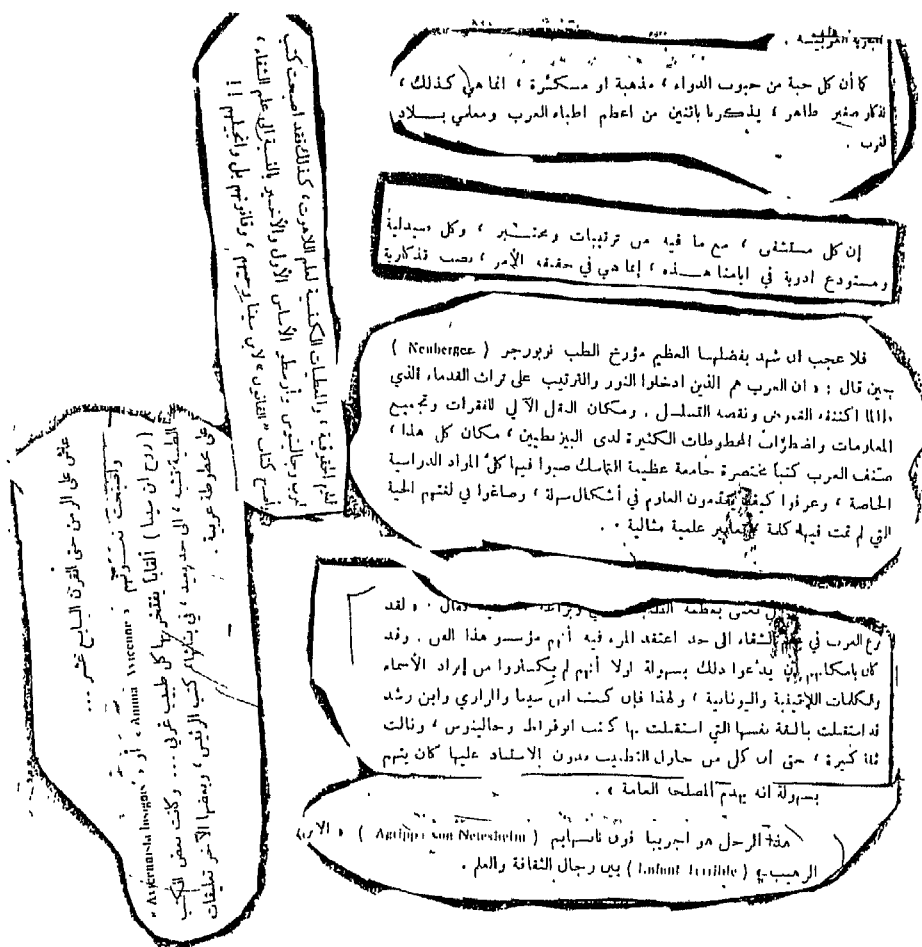 كما أن كل حبة من حبوب الدواء ، مذهبة او مسكرة ، انما هي كذلك ،
تذكار صغير طاهر ، يذكرنا باثنين من اعظم اطباء العرب ومعلمي بلاد
الغرب .
إن كل مستشفى ، مع ما فيه من ترتيبات ومختبر ، وكل صيدلية
ومستودع ادوية في ايامنا هذه ، إنما هي في حقيقة الأمر ، نصب تذكارية
فلا عجب ان شهد بفضلها العظيم مؤرخ الطب نويورجر ( Neuberger )
حين قال : « ان العرب هم الذين ادخلوا النور والترتيب على تراث القدماء الذي
طالما اكتنفه الغموض ونقصه التسلسل . ومكان النقل الآلي للفقرات وتجميع
المعلومات واضطراب المخطوطات الكثيرة لدى البيزنطيين ، مكان كل هذا ،
صنف العرب كتباً مختصرة جامعة عظيمة التماسك صبوا فيها كل المواد الدراسية
الخاصة ، وعرفوا كيف يقدمون العلوم في أشكال سهلة ، وصاغوا في لغتهم الحية
التي لم تمت فيها كلمة معايير علمية مثالية » .
قال : « لقد
برع العرب في الشفاء الى حد اعتقد المرء فيه أنهم مؤسسو هذا الفن . وقد
كان بامكانهم أن يدعوا ذلك بسهولة لولا أنهم لم يكثروا من إيراد الأسماء
والكلمات اللاتينية واليونانية ، ولهذا فإن كتب ابن سينا والرازي وابن رشد
قد استقبلت بالثقة نفسها التي استقبلت بها كتب ابوقراط وجالينوس ، ونالت
ثقة كبيرة ، حتى ان كل من حاول التطبيب بدون الاستناد عليها كان يتهم
بسهولة انه يهدم المصلحة العامة » .
هذا الرجل هو اجريبا فون ناتسهايم ( Agrippa von Netesheim )
الرهيب ( Enfant Terrible ) بين رجال الثقافة والعلم .
لعلم المخروقة ، والمعطيات الكنسية لعلم اللاهوت ، كذلك فقد اصبحت كتب
العرب وجالينوس وأرسطو الأساس الأول والأخير بالنسبة الى علم الشفاء ،
وأصبح كتاب « القانون » لابن سينا وحيهم ، وقانونهم بل وانجيلهم !!
وأصبحت
( روح ابن سينا ) ألقاباً يفتخر بها كل طبيب غربي ... وكانت بعض الكتب
الطبية تشبه ، الى حد بعيد ، في بنائها كتب الرئيس ، وبعضها الآخر تعليقات
على مخطوطة عربية .
عاش على الزمن حتى القرن السابع عشر ...